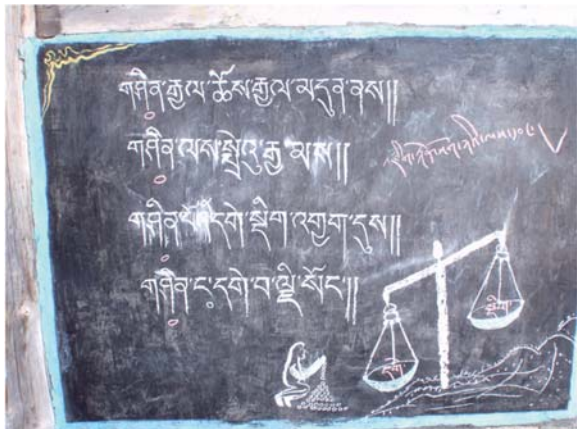 གཤིན་རྒྱལ་ཆོས་རྒྱལ་མདུན་ནས།།
གཤིན་ལས་སྤྲེའུ་རྒྱ་མས།།
གཤིན་པོའི་དགེ་སྡིག་འགྱག་དུས།།
གཤིན་ང་དགེ་བ་ལྗི་སོང།།
སྡིག
དགེ